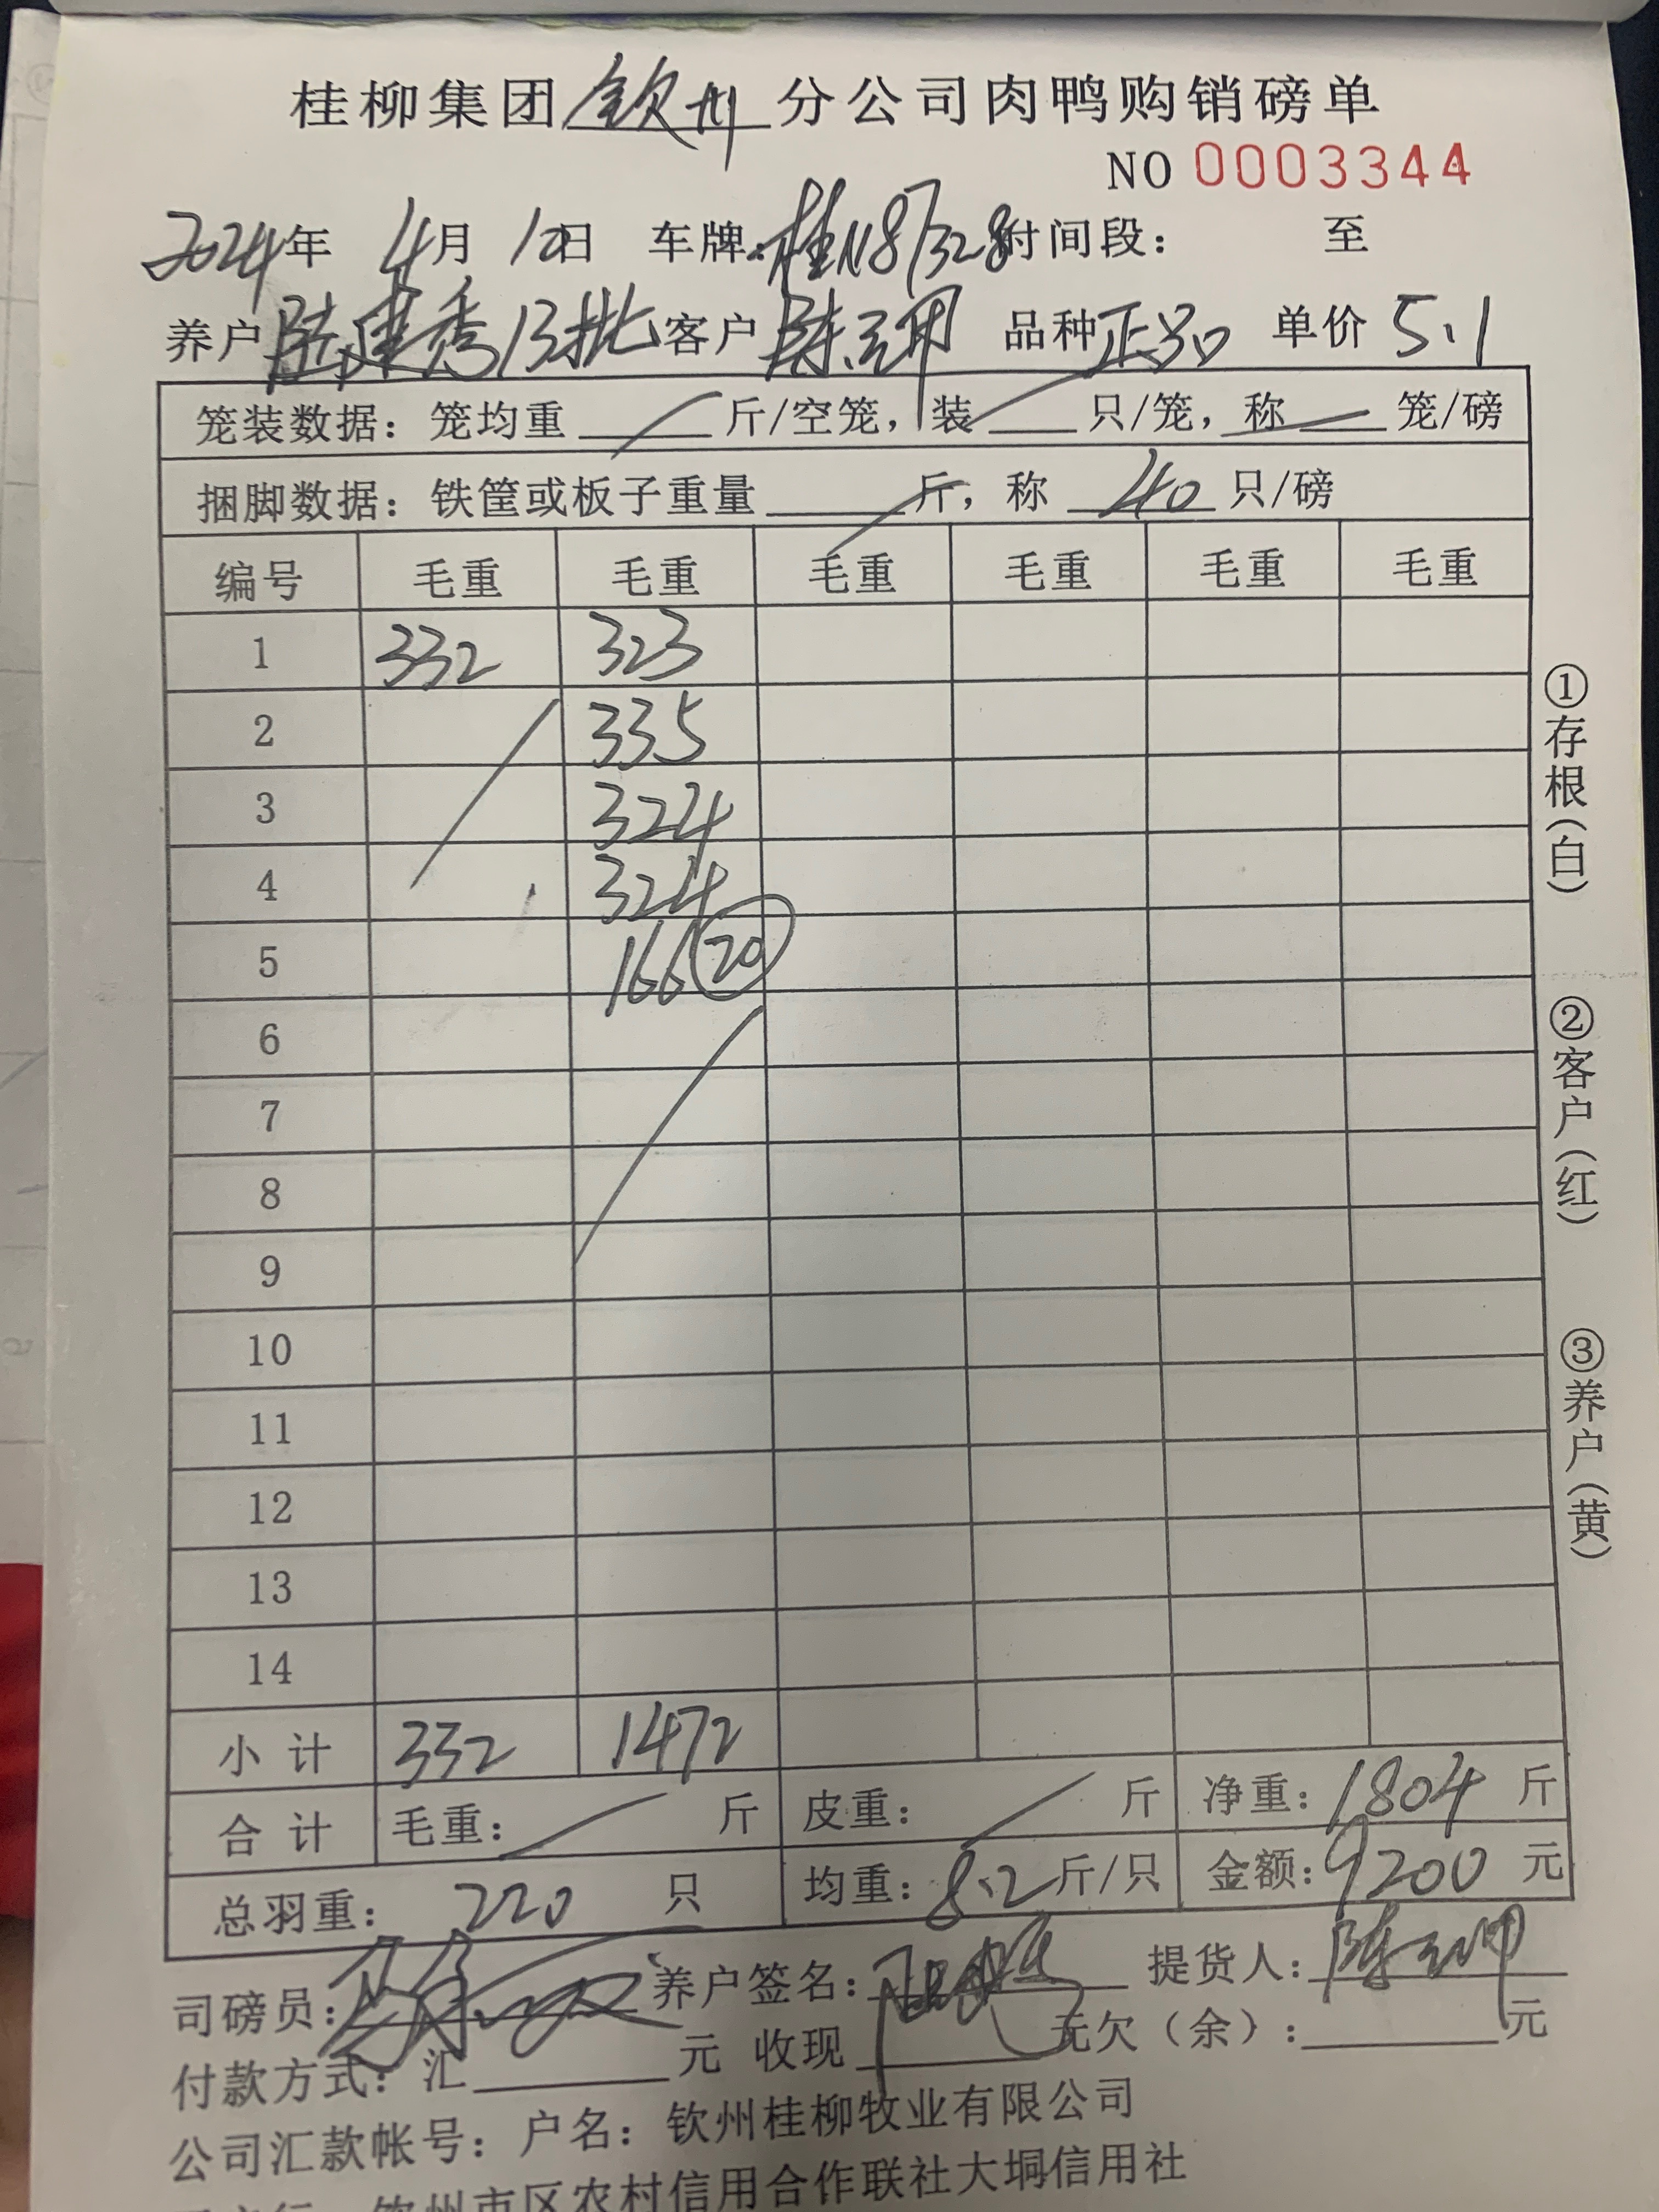 桂柳集团钦州分公司肉鸭购销磅单
NO 0003344
2024年 4月 10日 车牌:桂N87328时间段: 至
养户陆建秀13批客户陈 品种正品 单价5.1
笼装数据:笼均重 斤/空笼,装 只/笼,称 笼/磅
捆脚数据:铁筐或板子重量 斤,称 40 只/磅
编号 毛重 毛重 毛重 毛重 毛重 毛重
1 332 323
2 335
3 324
4 324
5 166 20
6
7
8
9
10
11
12
13
14
小计 332 1472
合计 毛重: 斤 皮重: 斤 净重:1804 斤
总羽重: 220 只 均重:8.2斤/只 金额:9200 元
司磅员: 养户签名: 提货人:陈
付款方式:汇 元 收现 元欠(余): 元
公司汇款帐号:户名:钦州桂柳牧业有限公司
钦州市区农村信用合作联社大垌信用社
①存根(白)
②客户(红)
③养户(黄)